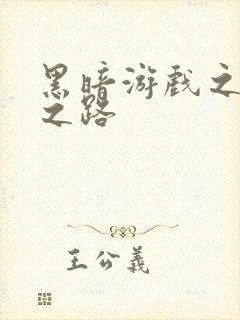 黑暗游戏之
之路
王公義